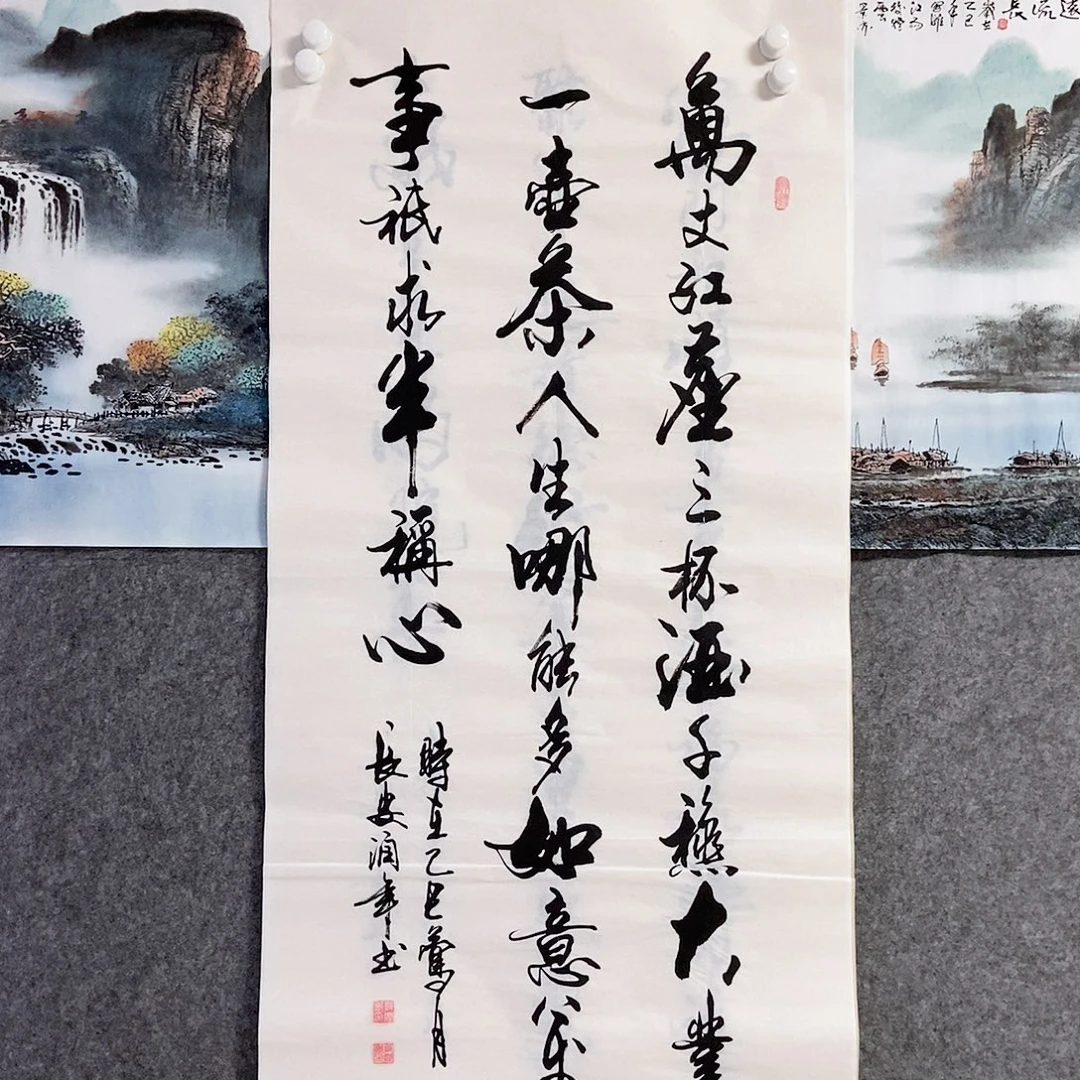 遠流長
萬丈紅塵三杯酒千穐大業
一壺茶人生哪能多如意萬
事祇求半稱心
時在乙巳月
長安潤年书